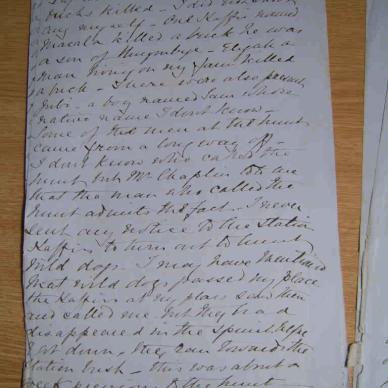 bucks killed - I did not
any myself - One Kaffir named
killed a buck he was
a son of - Elijah a
man living on my farm killed
a buck - There were also present
- a boy named Sam whose
native name I don't know -
Some of the men at the hunt
came from a long way off -
I don't know who called the
hunt but Mr Chaplin tells me
that the man who called the
hunt admits the fact - I never
sent any notice to the Station
Kaffirs to turn out to hunt
wild dogs. I may have mentioned
that wild dogs passed my place
the Kaffirs at my place saw them
and called me but they had
disappeared in the
I got down - they ran towards the
Station bush - this was about a
week previous to the hunt